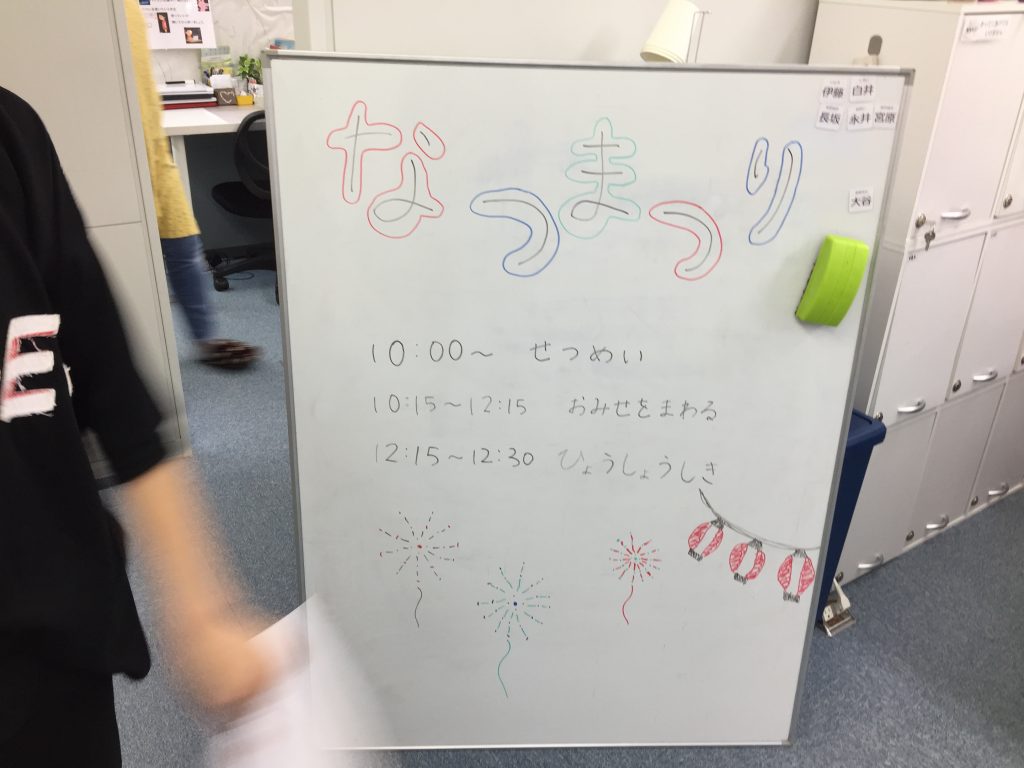 なつまつり
10:00～ せつめい
10:15～12:15 おみせをまわる
12:15～12:30 ひょうしょうしき
伊藤 白井
長坂 永井 宮原
大谷
E